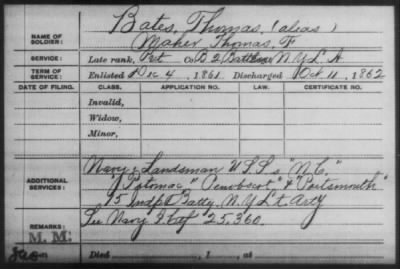 Bates, Thomas, (alias)
NAME OF SOLDIER: Maher, Thomas, F
SERVICE: Late rank, Pvt Co. B 2 Battln N.Y.L.A
TERM OF SERVICE: Enlisted Dec 4, 1861 Discharged Oct 11, 1862
DATE OF FILING. CLASS. APPLICATION NO. LAW. CERTIFICATE NO.
Invalid,
Widow,
Minor,
Navy: Landsman U.S.S.s "N.C."
ADDITIONAL SERVICES: "Potomac," "Penobscot" & "Portsmouth"
15 Indpt Batty. N.Y. Lt. Arty
REMARKS: See Navy 25.360.
M. M:
Died , 1 , at